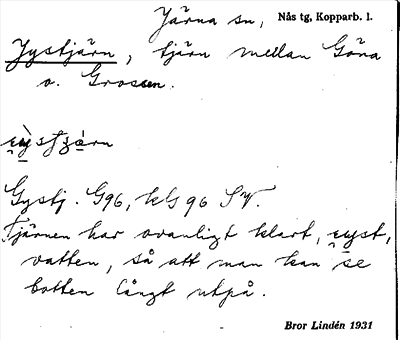 Järna sn, Nås tg, Kopparb. l.
Jystjärn, tjärn mellan Göna
o. Grossen.
Gystj. G96, kG 96 SV.
Tjärnen har ovanligt klart, ɛyst,
vatten, så att man kan se
botten långt utpå.
Bror Lindén 1931